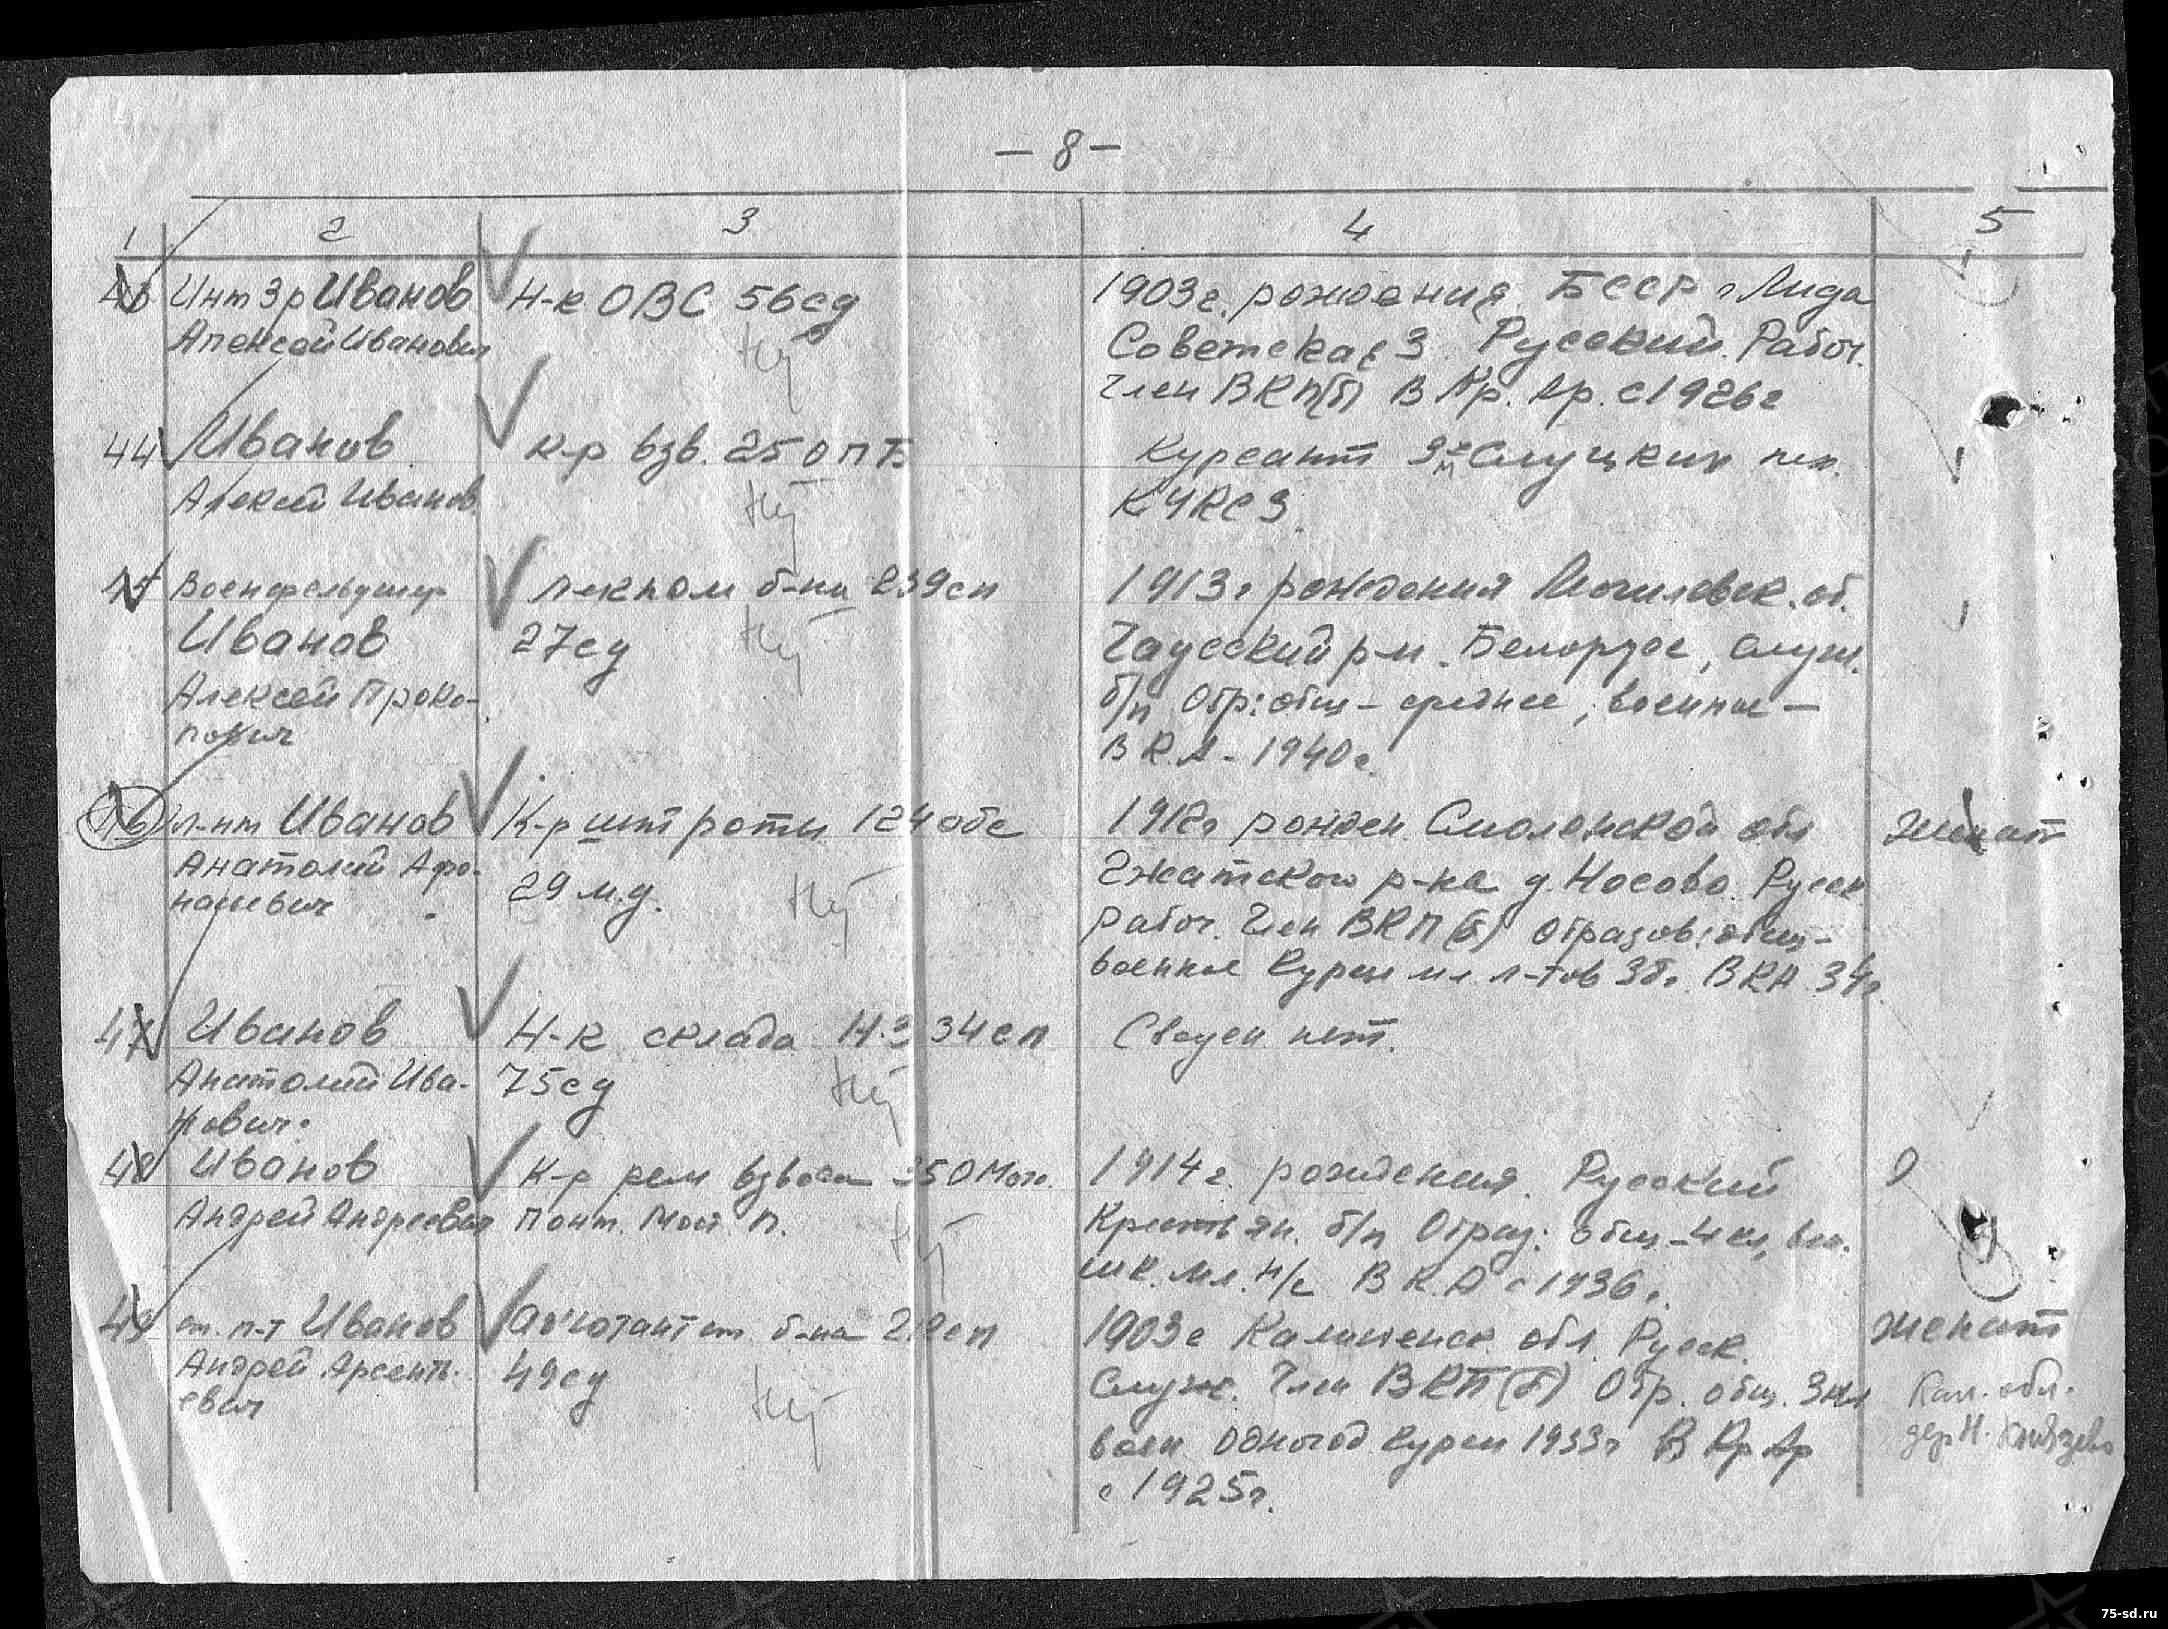 - 8 -
1 2 3 4 5
Инт 3 р Иванов Н-к ОВС 56сд 1903г. рождения БССР г Лида
Алексей Иванович Советская 3 Русский. Рабоч.
Член ВКП(б) В Кр. Ар. с 1926г
44 Иванов К-р взв. 25 ОПТБ Курсант
Алексей Иванов. КУКСЗ.
Военфельдшер лекпом б-на 239сп 1913г рождения Могилевск. об.
Иванов 27сд Чаусский р-н. Белорус, служ.
Алексей Проко- б/п Обр: общ - среднее, военное -
пович В К.А - 1940г.
46 л-нт Иванов К-р шт роты 124 обс 1912г рожден. Смоленской обл женат
Анатолий Афо- 29 м.д. Гжатского р-на д. Носово. Русск
насьевич рабоч. Член ВКП(б) Образов: общ-
военное Курсы мл. л-тов 36г. В КА 34г.
47 Иванов Н-к склада Н.З 34сп Сведен нет.
Анатолий Ива- 75сд
нович.
48 Иванов К-р рем взвода Мото 1914г. рождения. Русский
Андрей Андреевич Понт. Мост П. Крестьян. б/п Образ: общ - 4 кл,
шк. мл. н/с В К.А с 1936г.
49 ст. л-т Иванов Адъютант ст. б-на сп 1903г Калининск обл. Русск. женат
Андрей Арсенть- 49сд Служ. Член ВКП(б) Обр. общ. 3 кл Кал. обл.
евич воен одногод курсы 1933г В Кр Ар дер Н. Князево
с 1925г.
75-sd.ru